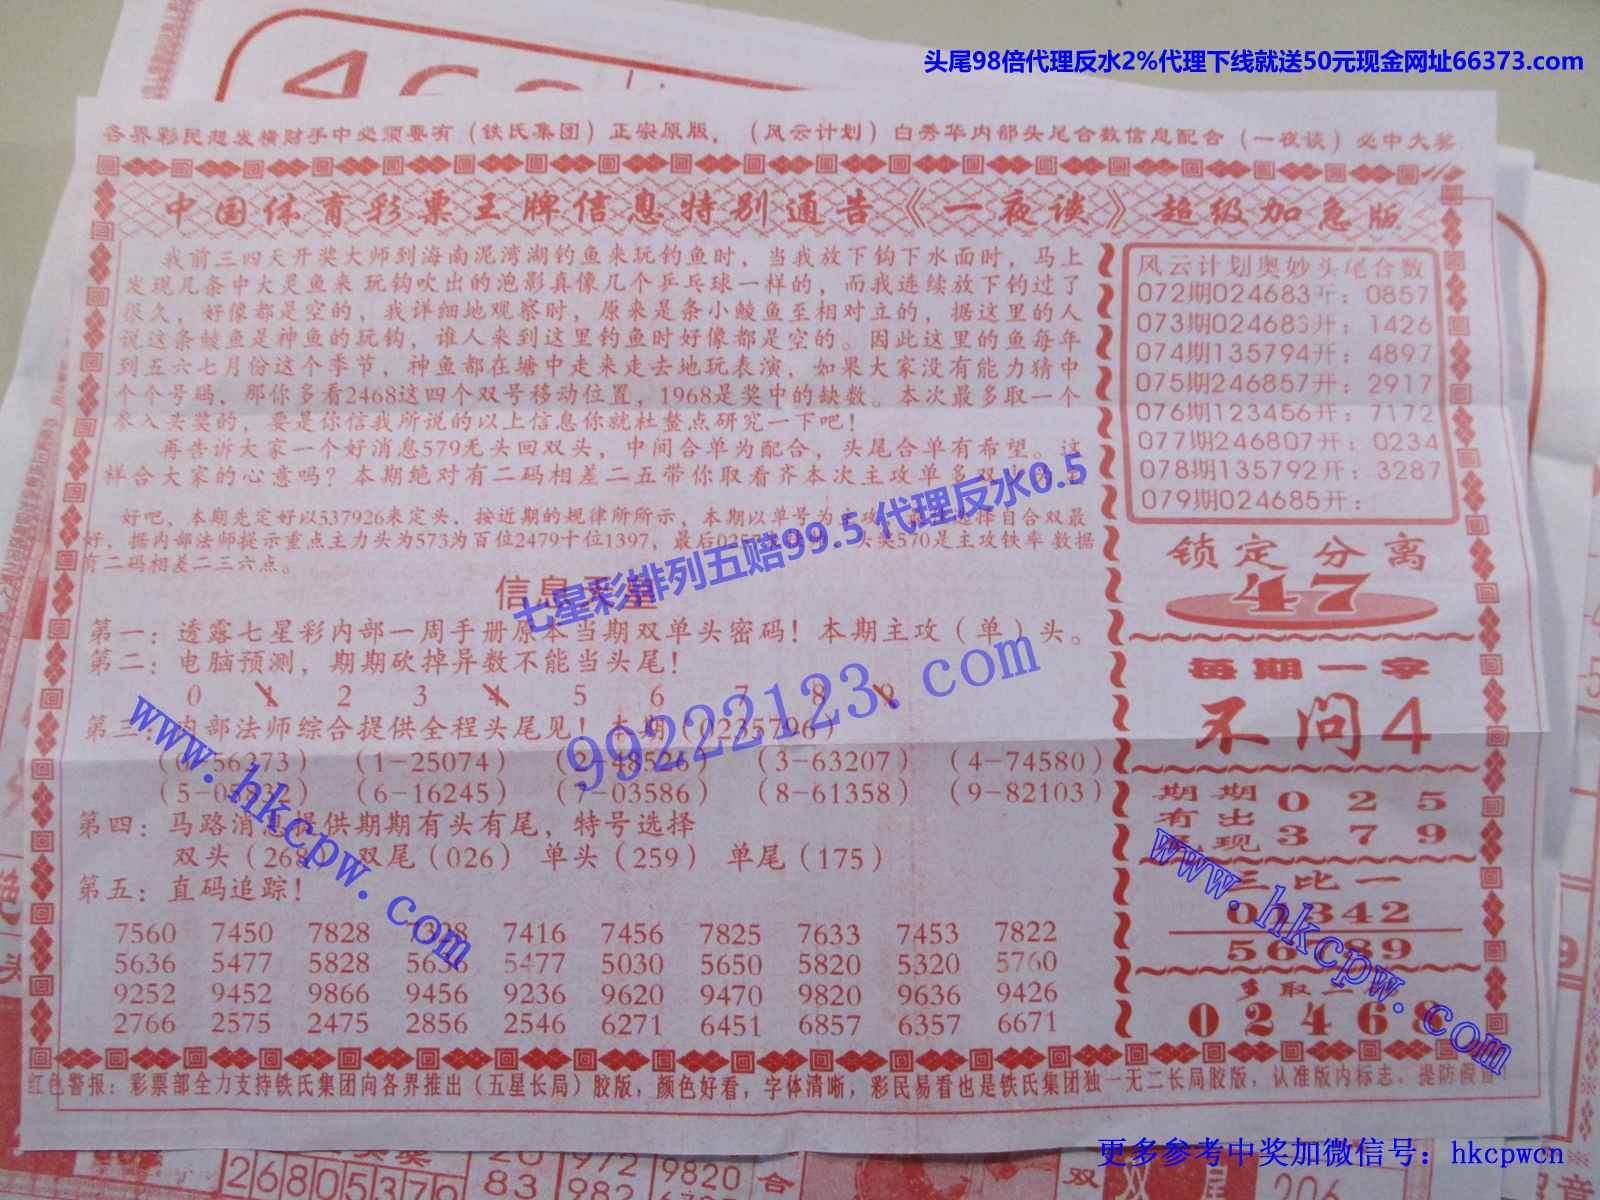 头尾98倍代理反水2%代理下线就送50元现金网址66373.com
各界彩民想发横财手中必须要有（铁氏集团）正宗原版，（风云计划）白秀华内部头尾合数信息配合（一夜谈）必中大奖
中国体育彩票王牌信息特别通告《一夜谈》超级加急版
我前三四天开奖大师到海南泥湾湖钓鱼来玩钓鱼时，当我放下钩下水面时，马上
发现几条中大灵鱼来玩钩吹出的泡影真像几个乒乓球一样的，而我连续放下钓过了
很久，好像都是空的，我详细地观察时，原来是条小鲮鱼至相对立的，据这里的人
说这条鲮鱼是神鱼的玩钩，谁人来到这里钓鱼时好像都是空的。因此这里的鱼每年
到五六七月份这个季节，神鱼都在塘中走来走去地玩表演，如果大家没有能力猜中
个个号码，那你多看2468这四个双号移动位置，1968是奖中的缺数。本次最多取一个
参入头奖的，要是你信我所说的以上信息你就杜整点研究一下吧！
再告诉大家一个好消息579无头回双头，中间合单为配合，头尾合单有希望。这
样合大家的心意吗？本期绝对有二码相差二五带你取看齐本次主攻单多双
好吧，本期先定好以537926来定头，按近期的规律所所示，本期以单号为主攻 择自合双最
好，据内部法师提示重点主力头为573为百位2479十位1397，最后025 头奖570是主攻铁率 数据
有二码相差二三六点。
七星彩排列五赔99.5 代理反水0.5
信息
第一：透露七星彩内部一周手册原本当期双单头密码！本期主攻（单）头。
第二：电脑预测，期期砍掉异数不能当头尾！
0 1 2 3 4 5 6 7 8 9
第三：内部法师综合提供全程头尾见！本期（0235796）
（0-56373）（1-25074）（2-48526）（3-63207）（4-74580）
（6-16245）（7-03586）（8-61358）（9-82103）
第四：马路消息提供期期有头有尾，特号选择
双头（268）双尾（026）单头（259）单尾（175）
第五：直码追踪！
7560 7450 7828 7416 7456 7825 7633 7453 7822
5636 5477 5828 5636 5477 5030 5650 5820 5320 5760
9252 9452 9866 9456 9236 9620 9470 9820 9636 9426
2766 2575 2475 2856 2546 6271 6451 6857 6357 6671
风云计划奥妙头尾合数
072期024683开：0857
073期024683开：1426
074期135794开：4897
075期246857开：2917
076期123456开：7172
077期246807开：0234
078期135792开：3287
079期024685开：
锁定分离
47
每期一字
不问4
期期 0 2 5
有出
现 3 7 9
三比一
01342
56789
多取一
0 2 4 6 8
99222123.com
www.hkcpw.com
www.hkcpw.com
红色警报：彩票部全力支持铁氏集团向各界推出（五星长局）胶版，颜色好看，字体清晰，彩民易看也是铁氏集团独一无二长局胶版，认准版内标志，提防假冒
更多参考中奖加微信号：hkcpwcn
26805379
972 9820 合
83 982
双
206